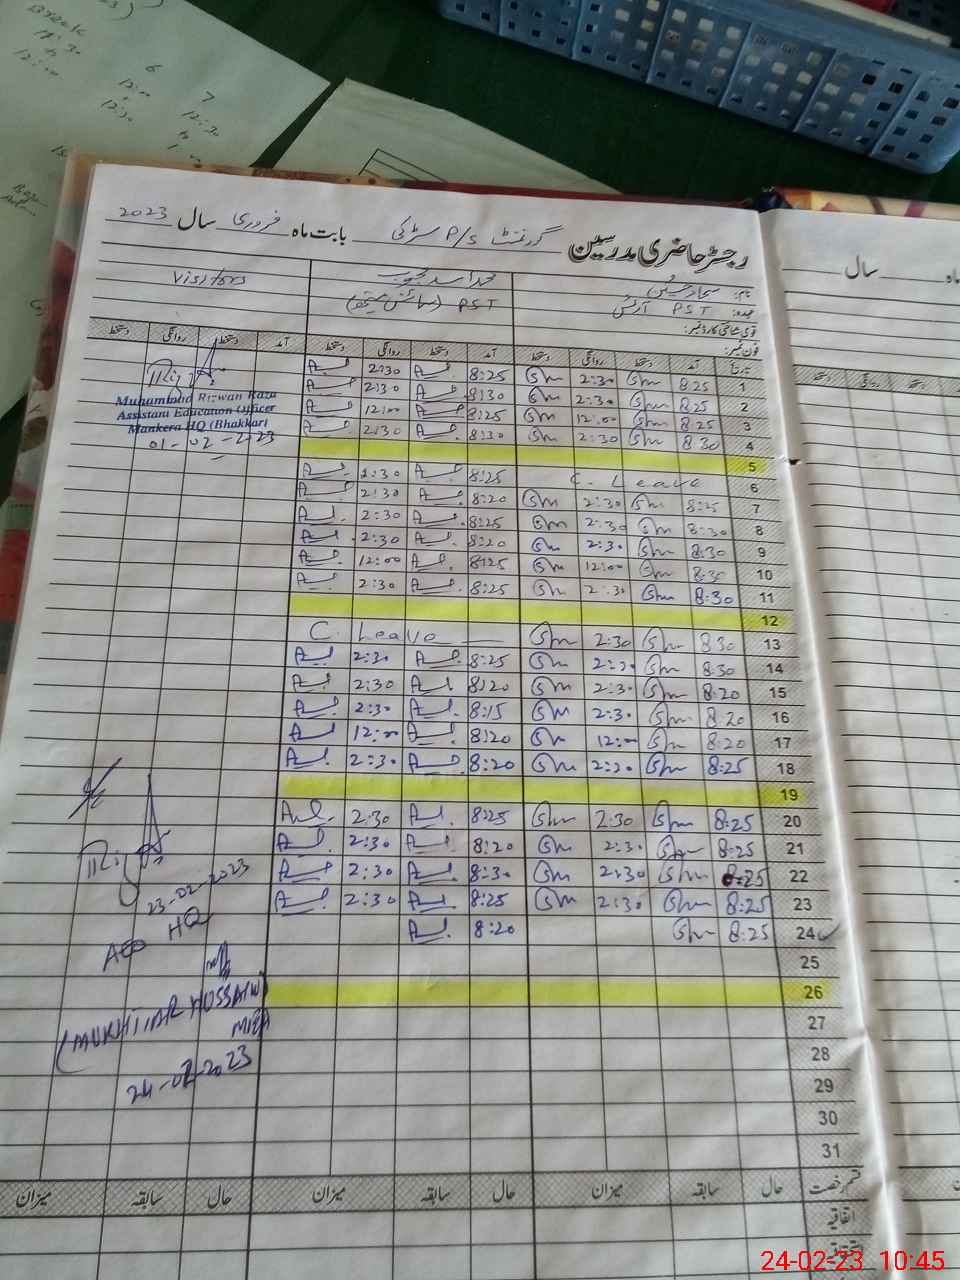 رجسٹر حاضری مدرسین گورنمنٹ P/S سڑکی بابت ماہ فروری سال 2023
نام: سجاد حسین
عہدہ: PST آرٹس
PST (سائنس میتھ)
Visitors
قومی شناختی کارڈ نمبر:
فون نمبر:
تاریخ آمد دستخط روانگی دستخط آمد دستخط روانگی دستخط آمد دستخط روانگی دستخط
1 8:25 Gm 2:30 Gm 8:25 2:30
2 8:25 Gm 2:30 Gm 8:30 2:30
3 8:25 Gm 12:00 Gm 8:25 12:00
4 8:30 Gm 2:30 Gm 8:30 2:30
5
6 C. Leave 8:25 2:30
7 8:25 Gm 2:30 Gm 8:20 2:30
8 8:30 Gm 2:30 Gm 8:25 2:30
9 8:30 Gm 2:30 Gm 8:20 2:30
10 8:30 Gm 12:00 Gm 8:25 12:00
11 8:30 Gm 2:30 Gm 8:25 2:30
12
13 8:30 Gm 2:30 Gm C. Leave
14 8:30 Gm 2:30 Gm 8:25 2:30
15 8:20 Gm 2:30 Gm 8:20 2:30
16 8:20 Gm 2:30 Gm 8:15 2:30
17 8:20 Gm 12:00 Gm 8:20 12:00
18 8:25 Gm 2:30 Gm 8:20 2:30
19
20 8:25 Gm 2:30 Gm 8:25 2:30
21 8:25 Gm 2:30 Gm 8:20 2:30
22 8:25 Gm 2:30 Gm 8:30 2:30
23 8:25 Gm 2:30 Gm 8:25 2:30
24 8:25 Gm 8:20
25
26
27
28
29
30
31
Muhammad Rizwan Raza
Assistant Education Officer
Mankera HQ (Bhakkar)
01-02-2023
23-02-2023
AEO HQ
(MUKHTIAR HUSSAIN)
MEA
24-02-2023
قسم رخصت حال سابقہ میزان حال سابقہ میزان حال سابقہ میزان
اتفاقیہ
سال
دستخط روانگی دستخط
24-02-23 10:45